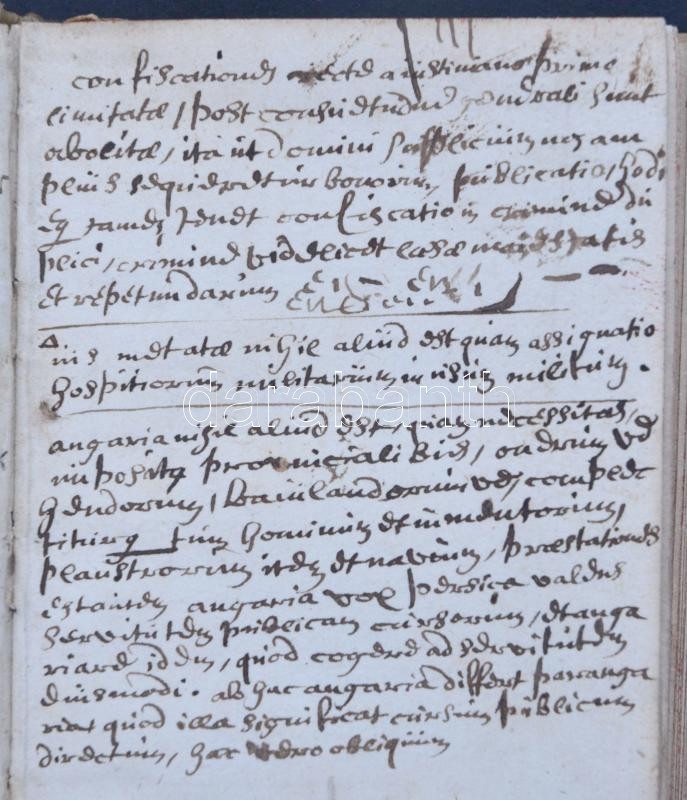 confiscationes recte a iustiniano prime
limitatæ, post consuetudine generali sunt
abolitæ, ita ut domini supplicium non am
plius sequeretur bonorum publicatio, hodi
eq tamen tenet confiscatio in crimine du
plici, crimine videlicet læsæ maiestatis
et repetundarum
ius metatæ nihil aliud est quam assignatio
hospitiorum militarium in usum militum.
darabanth
angaria nihil aliud est, quam necessitas,
imposita provincialibus, earum ve
hendorum, baiulandorumve, complec
titurq tum hominum et iumentorum,
plaustrorum item et navium, præstationes
est autem angaria vox persica valens
servitutem publicam cursorum, et anga
riare idem, quod cogere ad servitutem
eiusmodi. ab hac angaria differt paranga
ria, quod illa significat cursum publicum
directum, hac vero obliquum